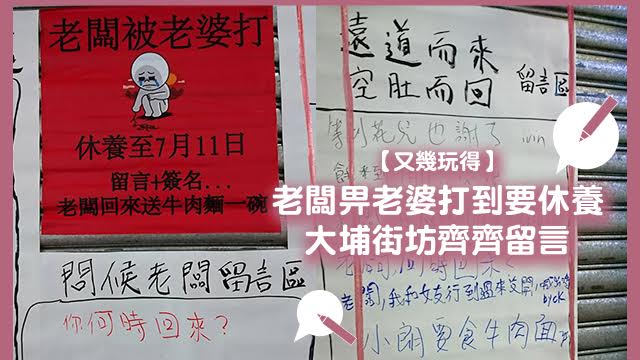 老闆被老婆打
休養至7月11日
留言+簽名...
老闆回來送牛肉麵一碗
問候老闆留言區
你何時回來？
遠道而來
空肚而回
留言區
等到花兒也謝了
【又幾玩得】
老闆畀老婆打到要休養
大埔街坊齊齊留言
老闆,我和女友行到過來
小朋要食牛肉面